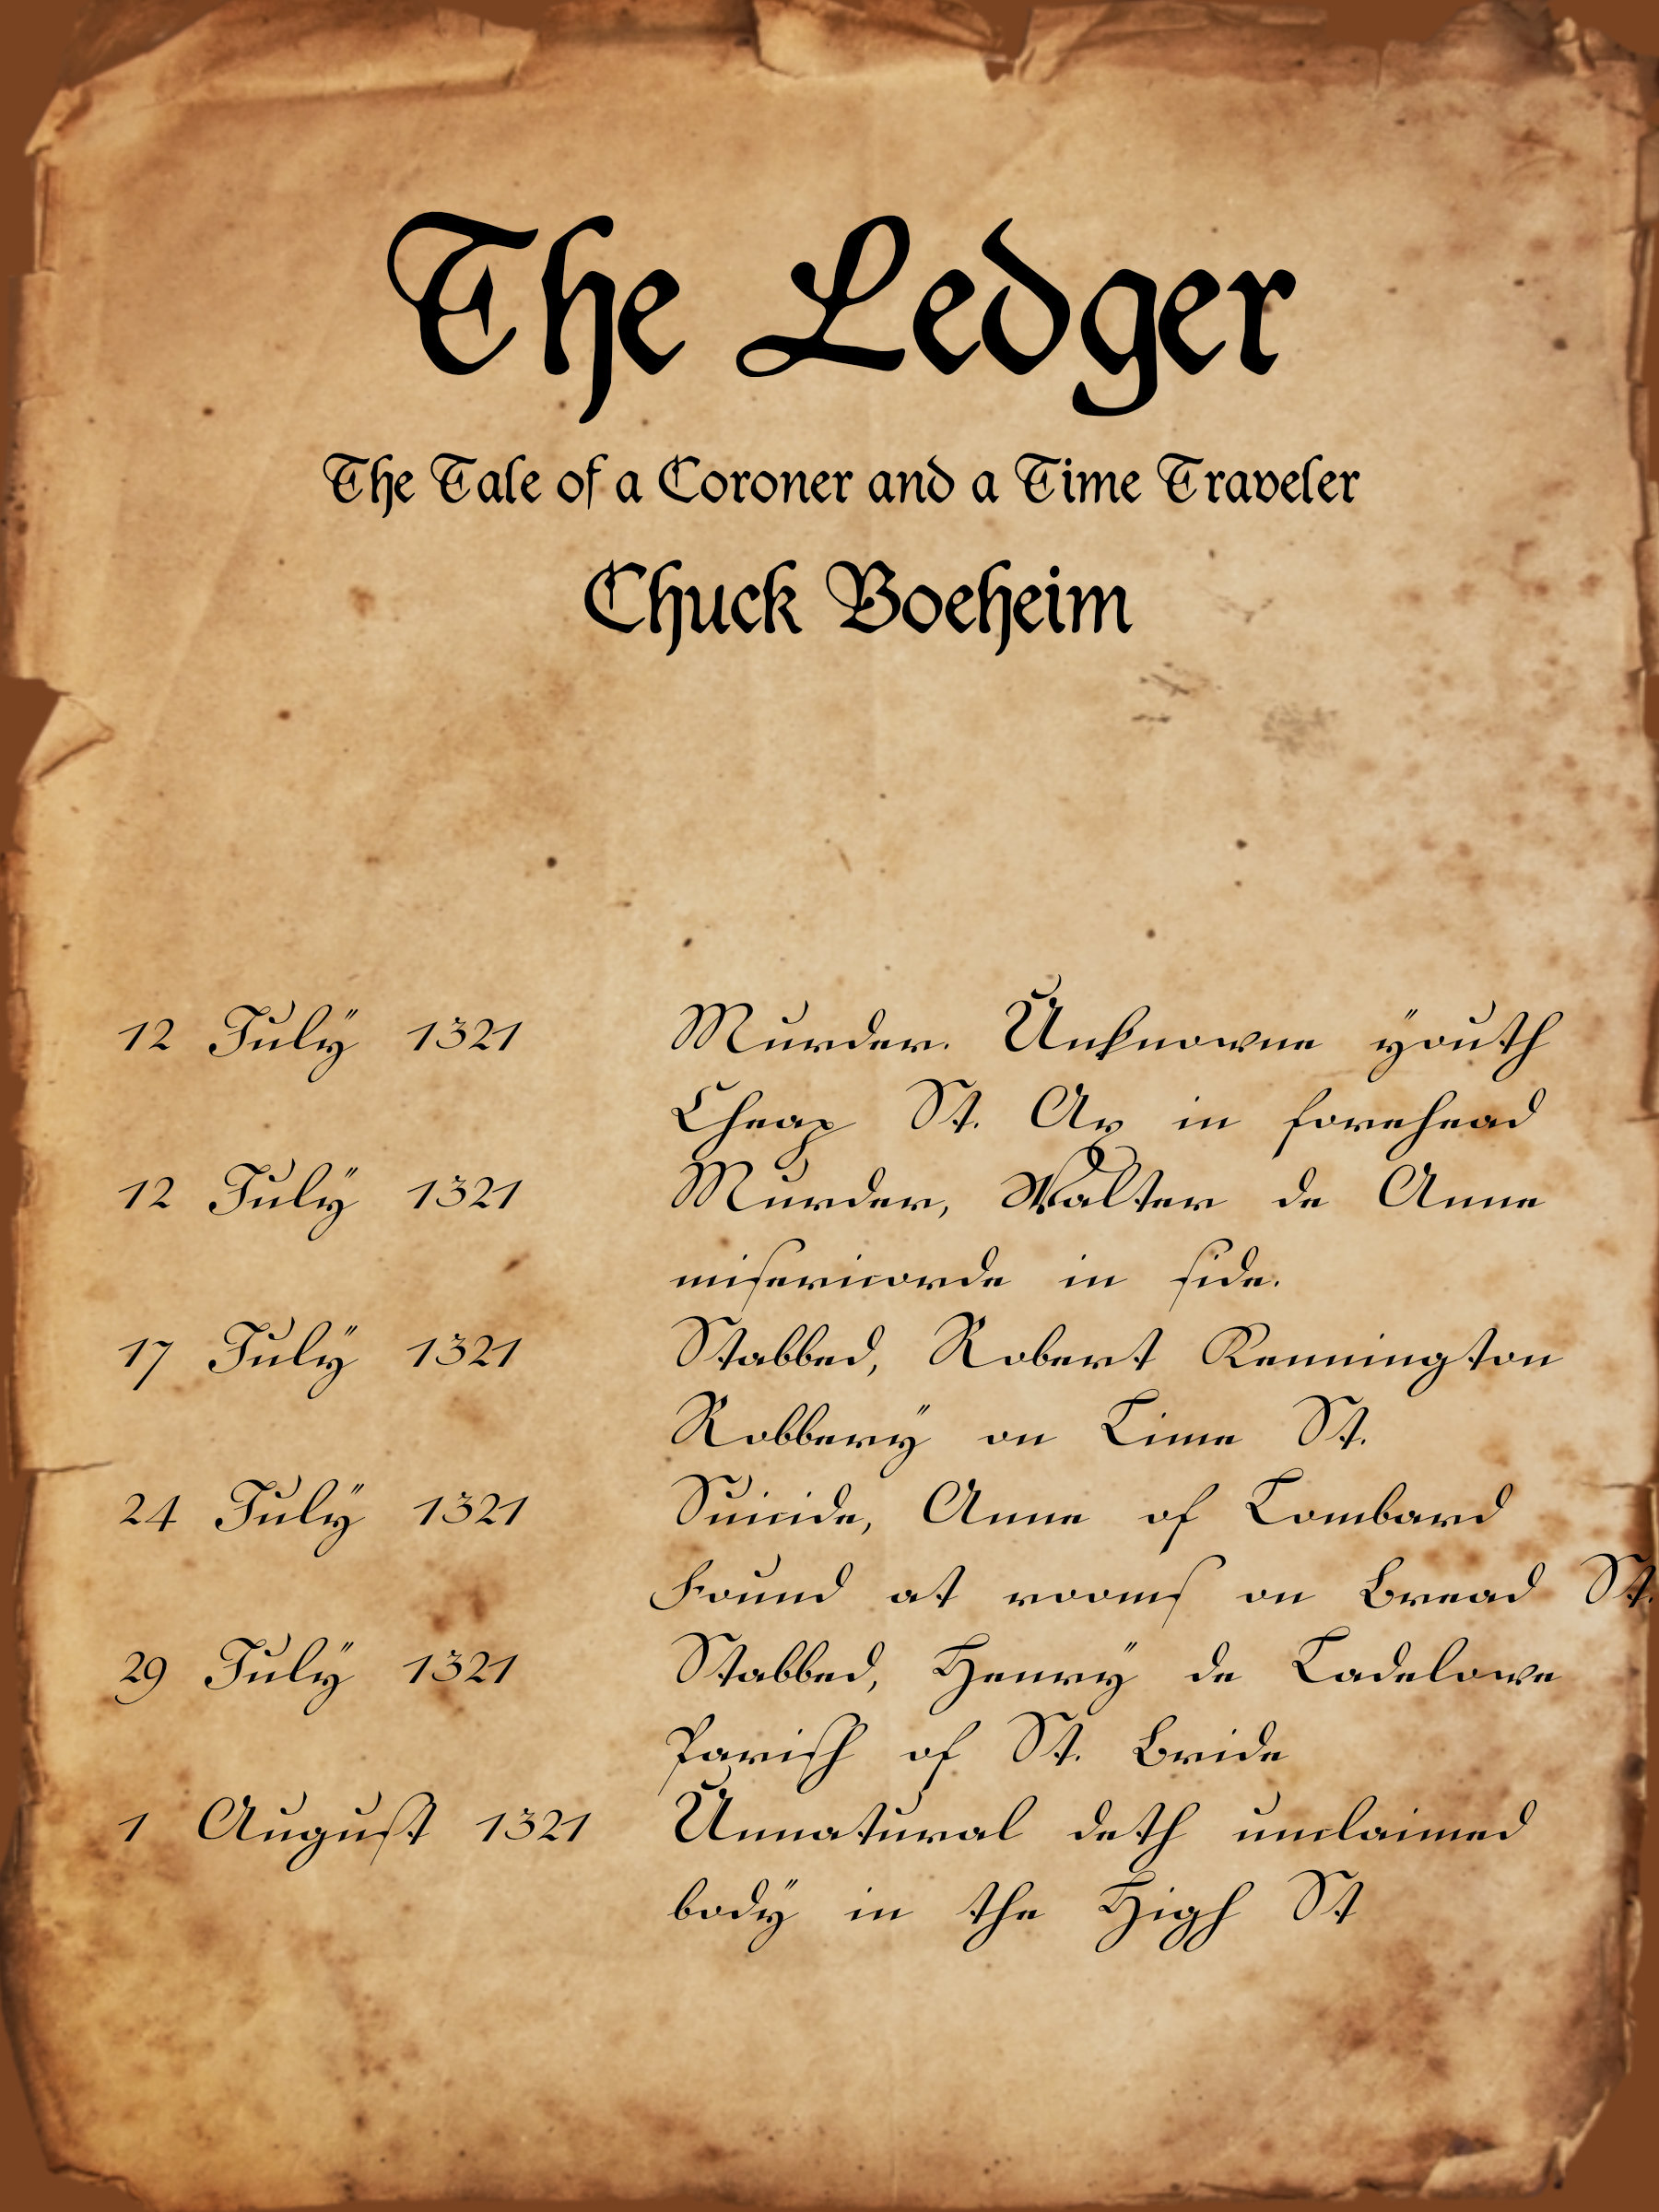 The Ledger
The Tale of a Coroner and a Time Traveler
Chuck Boeheim
12 July 1321 Murder. Unknowne youth
Cheap St. Ax in forehead
12 July 1321 Murder, Walter de Anne
misericorde in side.
17 July 1321 Stabbed, Robert Kennington
Robbery on Lime St.
24 July 1321 Suicide, Anne of Lombard
Found at rooms on Bread St.
29 July 1321 Stabbed, Henry de Ladelowe
Parish of St. Bride
1 August 1321 Unnatural deth unclaimed
body in the High St